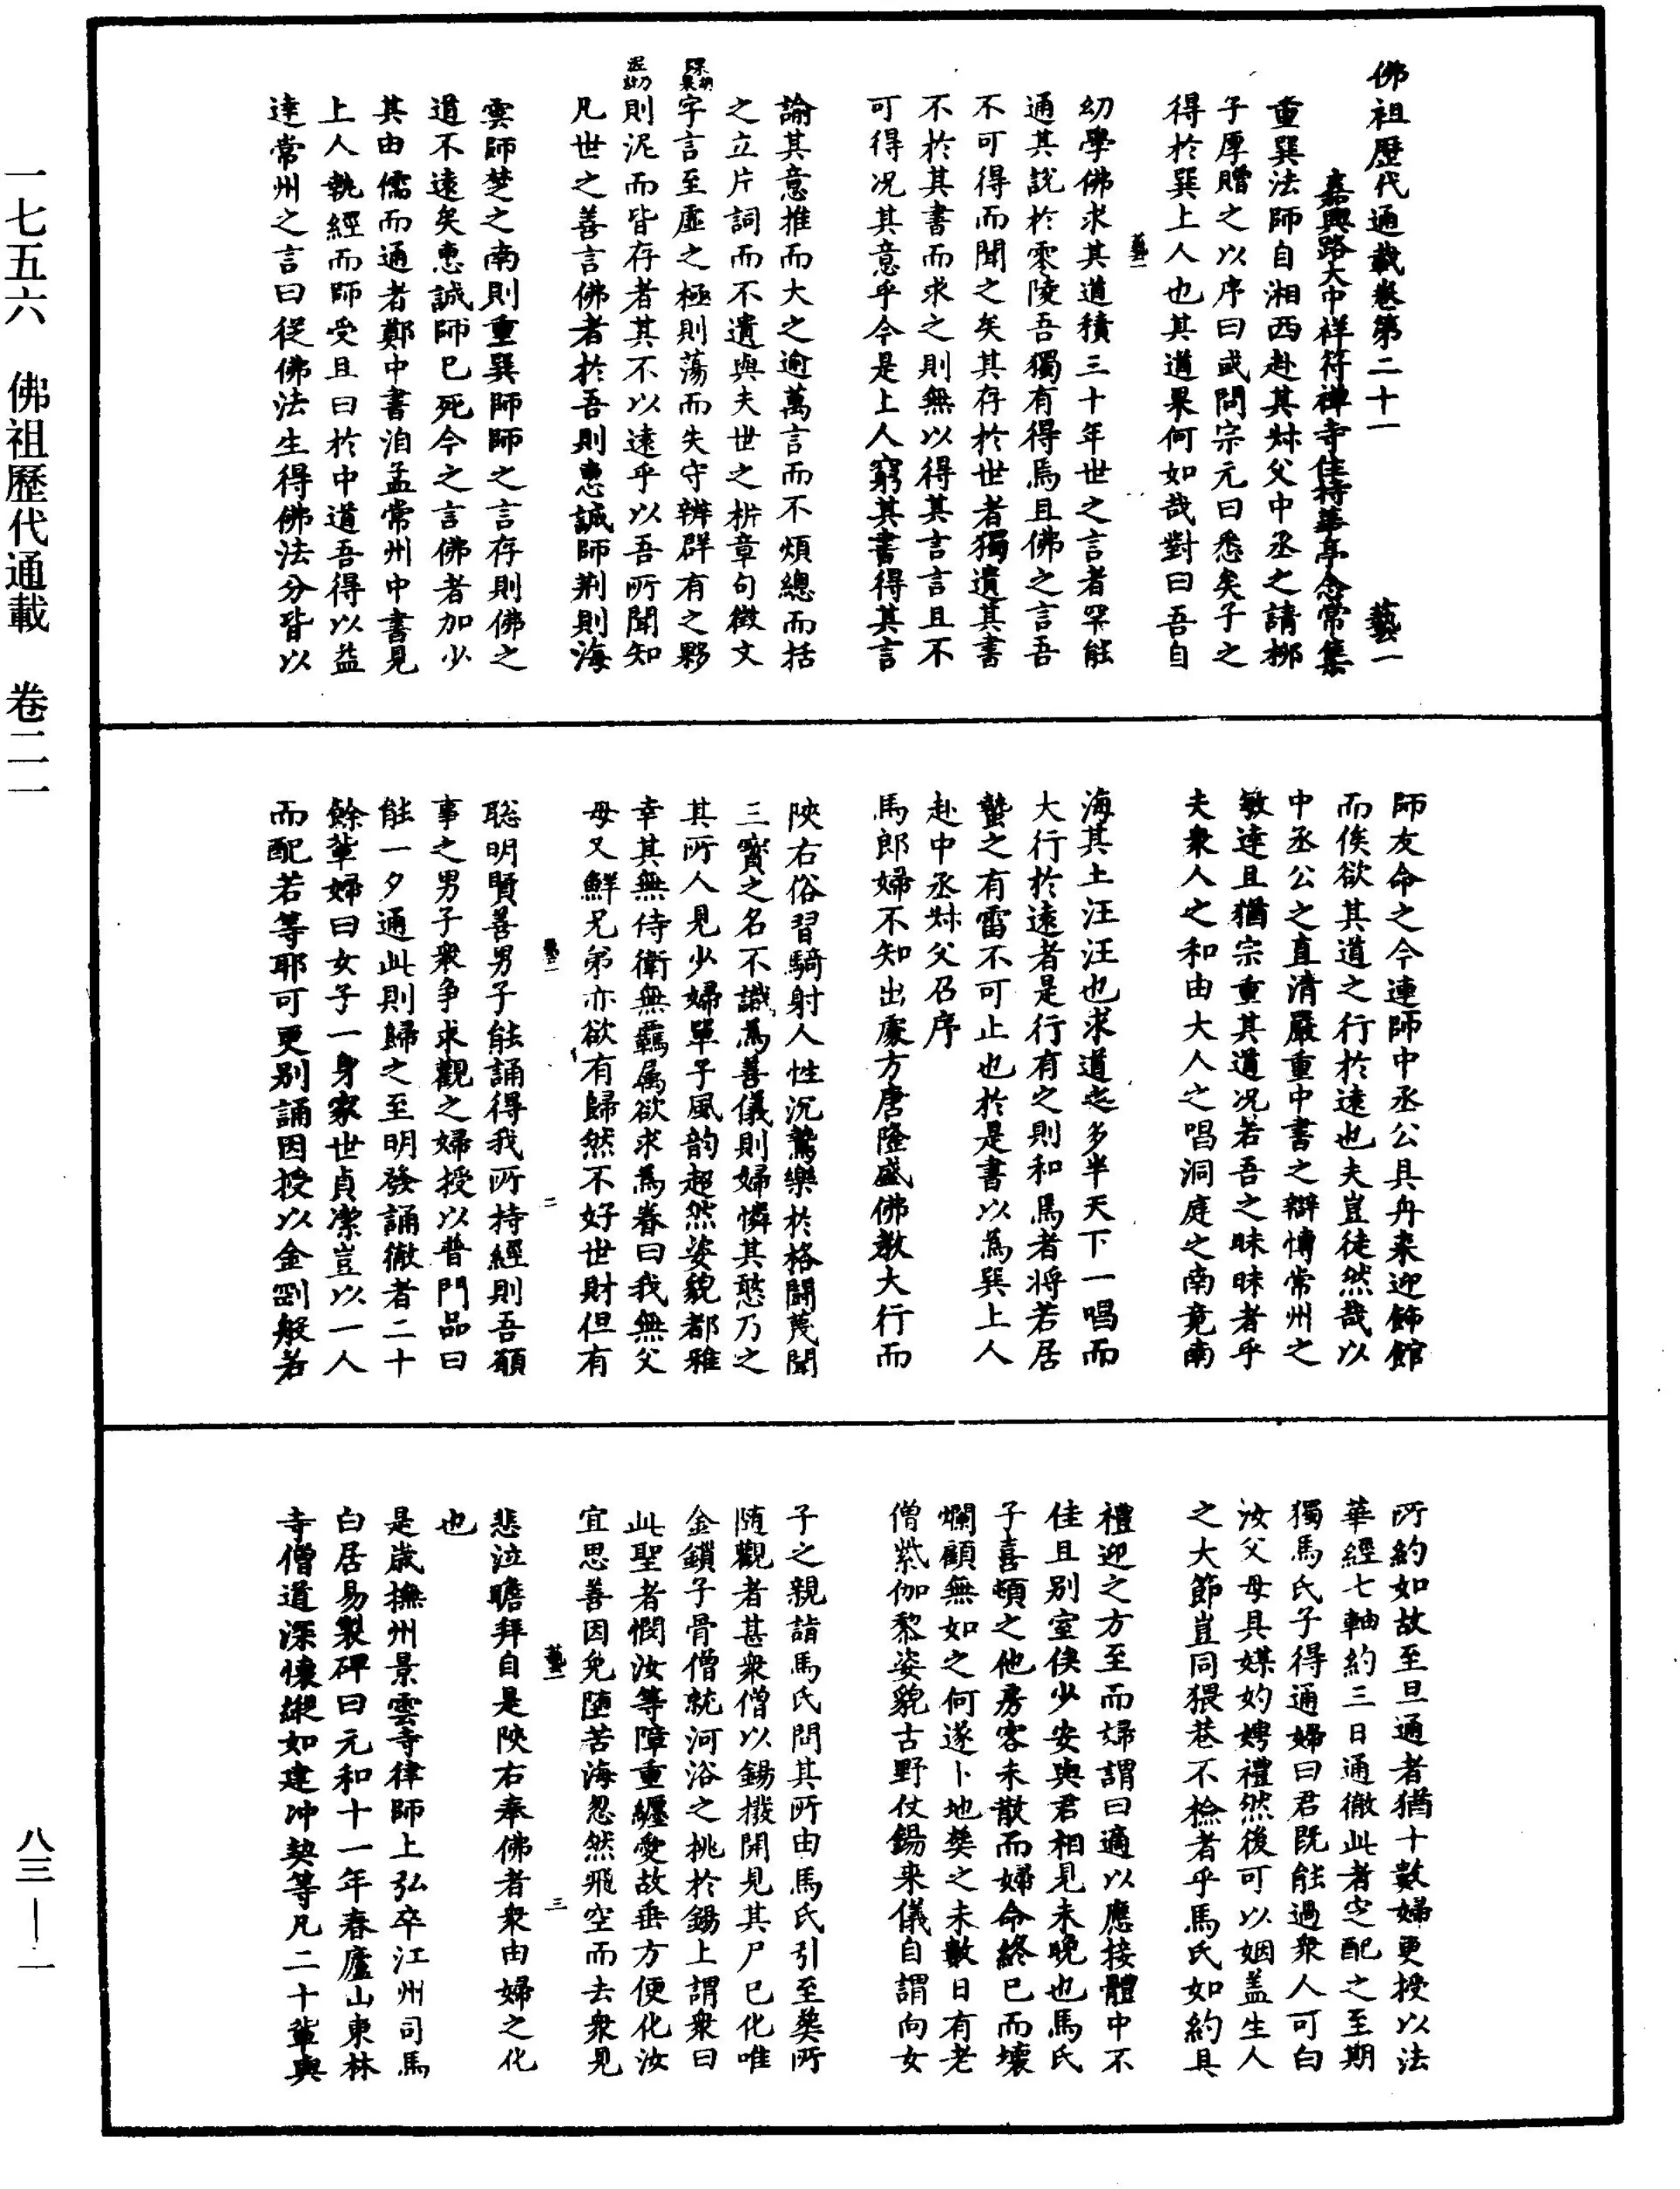 佛祖歷代通載卷第二十一　藝一
嘉興路大中祥符禪寺住持華亭念常集
重巽法師自湘西赴其叔父中丞之請柳
子厚贈之以序曰或問宗元曰悉矣子之
得於巽上人也其道果何如哉對曰吾自
幼學佛求其道積三十年世之言者罕能
通其說於零陵吾獨有得焉且佛之言吾
不可得而聞之矣其存於世者獨遺其書
不於其書而求之則無以得其言言且不
可得況其意乎今是上人窮其書得其言
諭其意推而大之逾萬言而不煩總而括
之立片詞而不遺與夫世之析章句徵文
字言至虛之極則蕩而失守辨群有之夥
則泥而皆存者其不以遠乎以吾所聞知
凡世之善言佛者於吾則惠誠師荆則海
雲師楚之南則重巽師師之言存則佛之
道不遠矣惠誠師已死今之言佛者加少
其由儒而通者鄭中書洎孟常州中書見
上人執經而師受且曰於中道吾得以益
達常州之言曰從佛法生得佛法分皆以
師友命之今連師中丞公具舟來迎飾館
而俟欲其道之行於遠也夫豈徒然哉以
中丞公之直清嚴重中書之辯愽常州之
敏達且猶宗重其道况若吾之昧昧者乎
夫衆人之和由大人之唱洞庭之南竟南
海其土汪汪也求道者多半天下一唱而
大行於遠者是行有之則和焉者將若居
蟄之有雷不可止也於是書以為巽上人
赴中丞叔父召序
馬郎婦不知出處方唐隆盛佛教大行而
陝右俗習騎射人性沉鷙樂於格鬪蔑聞
三寶之名不識為善儀則婦憐其憨乃之
其所人見少婦單子風韵超然姿貌都雅
幸其無侍衛無羈属欲求為眷曰我無父
母又鮮兄弟亦欲有歸然不好世財但有
聡明賢善男子能誦得我所持經則吾願
事之男子衆争求觀之婦授以普門品曰
能一夕通此則歸之至明發誦徹者二十
餘輩婦曰女子一身家世貞潔豈以一人
而配若等耶可更别誦因授以金剛般若
所約如故至旦通者猶十數婦更授以法
華經七軸約三日通徹此者定配之至期
獨馬氏子得通婦曰君既能過衆人可白
汝父母具媒妁娉禮然後可以姻盖生人
之大節豈同猥巷不檢者乎馬氏如約具
禮迎之方至而婦謂曰適以應接體中不
佳且别室俟少安與君相見未晚也馬氏
子喜頓之他房客未散而婦命終已而壞
爛顧無如之何遂卜地葬之未數日有老
僧紫伽黎姿貌古野仗錫來儀自謂向女
子之親詣馬氏問其所由馬氏引至葬所
随觀者甚衆僧以錫撥開見其尸已化唯
金鎖子骨僧就河浴之挑於錫上謂衆曰
此聖者憫汝等障重纏愛故垂方便化汝
宜思善因免墮苦海忽然飛空而去衆見
悲泣瞻拜自是陝右奉佛者衆由婦之化
也
是歲撫州景雲寺律師上弘卒江州司馬
白居易製碑曰元和十一年春廬山東林
寺僧道深懷縱如建冲契等凡二十輩與
藝一
二
三
一七五六　佛祖歷代通載　卷二一
八三—一